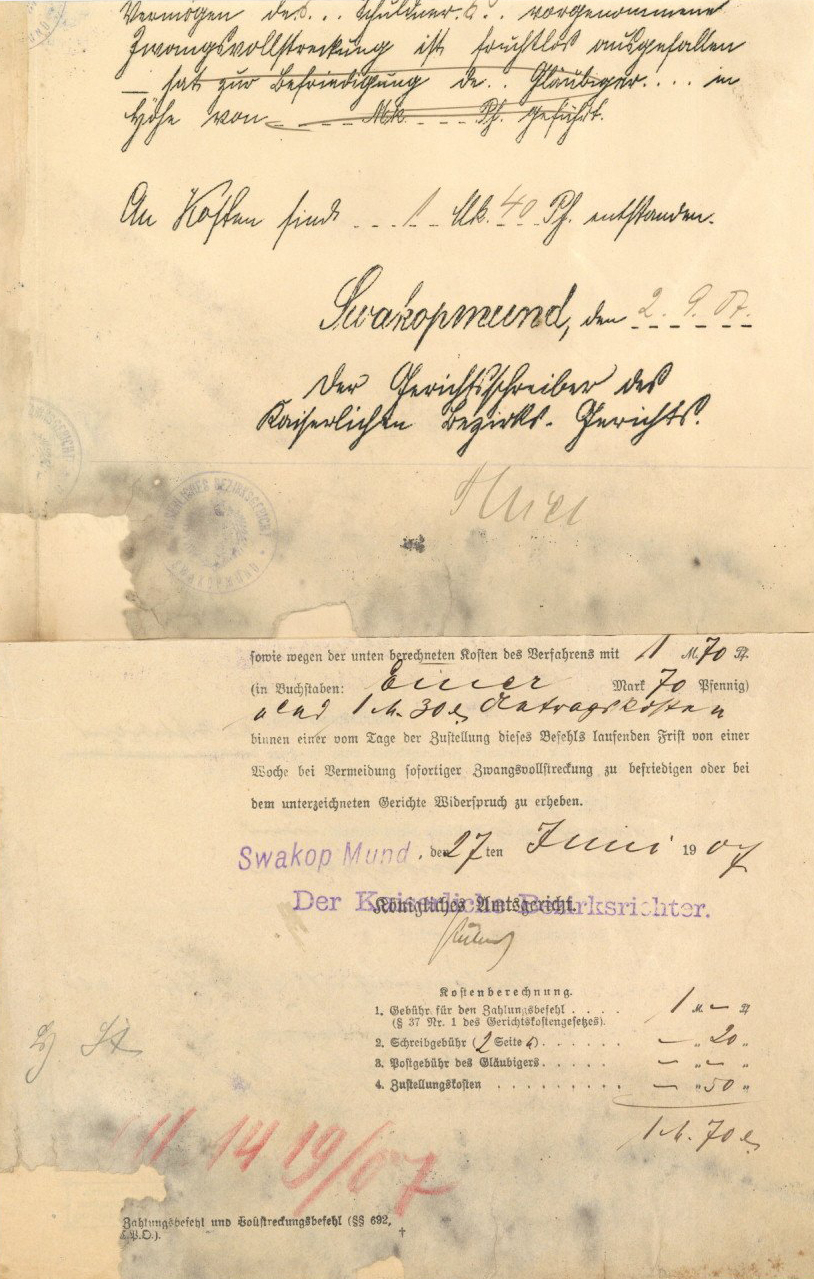 Vermögen des... Schuldner.s.. vorgenommene
Zwangsvollstreckung ist fruchtlos ausgefallen
— hat zur Befriedigung de.. Gläubiger.... in
Höhe von ---- Mk. ---- Pf. geführt.
An Kosten sind ---1-- Mk. 40 Pf. entstanden.
Swakopmund, den 2. 9. 07.
Der Gerichtsschreiber des
Kaiserlichen Bezirks-Gerichts.
BEZIRKSGERICHT
BEZIRKSGERICHT
SWAKOPMUND
sowie wegen der unten berechneten Kosten des Verfahrens mit 1 M. 70 Pf.
(in Buchstaben: Einer Mark 70 Pfennig)
und 1 M. 30 Antragskosten
binnen einer vom Tage der Zustellung dieses Befehls laufenden Frist von einer
Woche bei Vermeidung sofortiger Zwangsvollstreckung zu befriedigen oder bei
dem unterzeichneten Gerichte Widerspruch zu erheben.
Swakop Mund, den 27 ten Juni 19 07
Königliches Amtsgericht.
Der Kaiserliche Bezirksrichter.
Kostenberechnung.
1. Gebühr für den Zahlungsbefehl . . . . 1 M. — Pf
(§ 37 Nr. 1 des Gerichtskostengesetzes).
2. Schreibgebühr (2 Seite n) . . . . . . — " 20 "
3. Postgebühr des Gläubigers . . . . . — " — "
4. Zustellungskosten . . . . . . . . . — " 50 "
1 M. 70
14 19/07
Zahlungsbefehl und Vollstreckungsbefehl (§§ 692,
Z.P.O.).